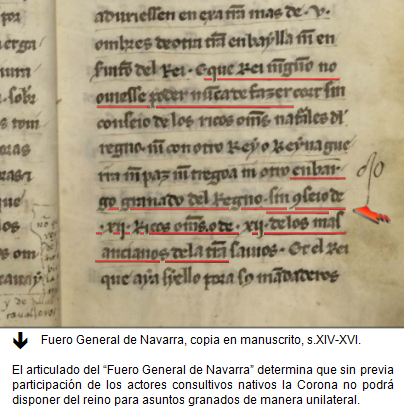 por
aduriessen en era tr̄a mas de · v ·
ombres de otra tr̄a en baylla nī en
seruicio del Rei · Et que Rei ninguno no
ouiesse poder nunca de fazer cort sin
conseio de los ricos om̄s naturales del
regno · nī con otro Rey o Reyna gue
rra nī paz nī tregoa nī otro enbar
go granado del Regno · sin conseio de
· xij · Ricos om̄s · o de · xij · de los mas
ancianos de la tr̄a sauios · Et el Rei
que aya siello pora sus mandaderos
Fuero General de Navarra, copia en manuscrito, s.XIV-XVI.
El articulado del “Fuero General de Navarra” determina que sin previa
participación de los actores consultivos nativos la Corona no podrá
disponer del reino para asuntos granados de manera unilateral.